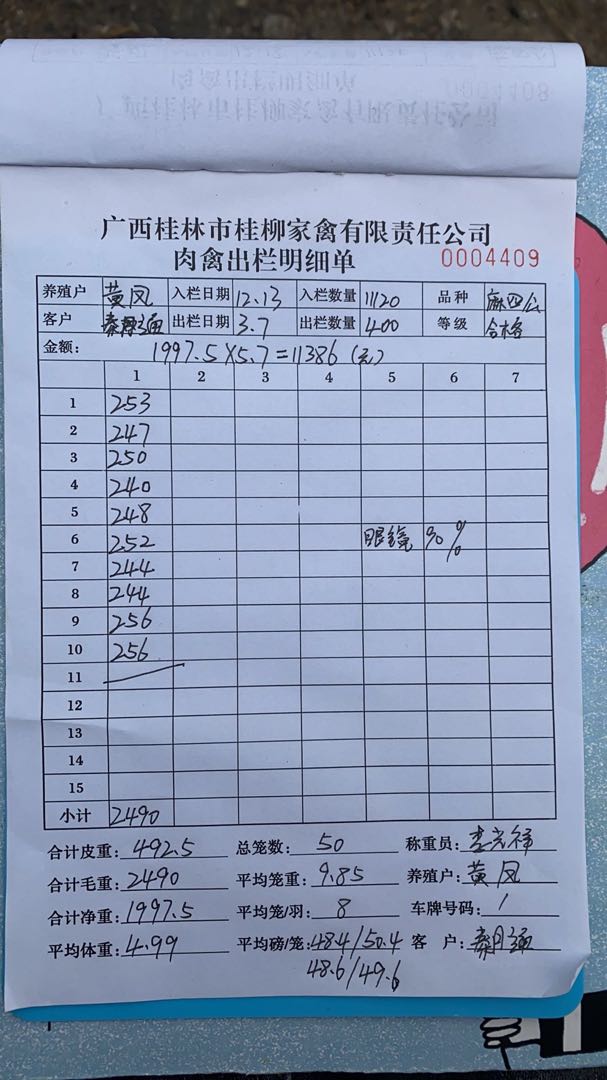 广西桂林市桂柳家禽有限责任公司
肉禽出栏明细单 0004409
养殖户 黄凤 入栏日期 12.13 入栏数量 11120 品种 麻四公
客户 出栏日期 3.7 出栏数量 400 等级 合格
金额: 1997.5×5.7=11386(元)
1 2 3 4 5 6 7
1 253
2 247
3 250
4 240
5 248
6 252 眼镜 90%
7 244
8 244
9 256
10 256
11
12
13
14
15
小计 2490
合计皮重: 492.5 总笼数: 50 称重员: 李光祥
合计毛重: 2490 平均笼重: 9.85 养殖户: 黄凤
合计净重: 1997.5 平均笼/羽: 8 车牌号码: /
平均体重: 4.99 平均磅/笼: 48.4/50.4 客 户:
48.6/49.6